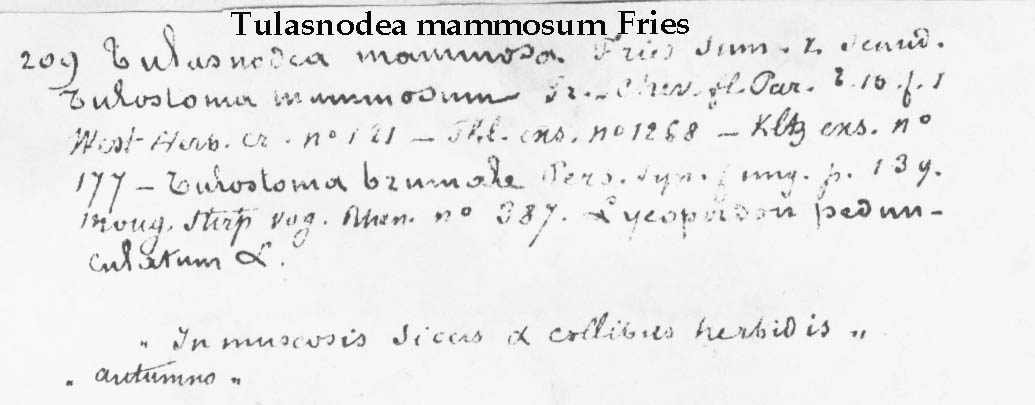 Tulasnodea mammosum Fries
209 Tulasnodea mammosa. Fries Sum. v. scand.
Tulostoma mammosum Fr. - Chev. fl. Par. t. 10. f. 1
West Herb. cr. nº 121 — Fkl. exs. nº 1268 — Kltz exs. nº
177 — Tulostoma brumale Pers. syn. fung. p. 139.
Moug. Stirp vog. Rhen. nº 387. Lycoperdon pedun-
culatum L.
„ In muscosis siccis & collibus herbidis „
„ autumno „